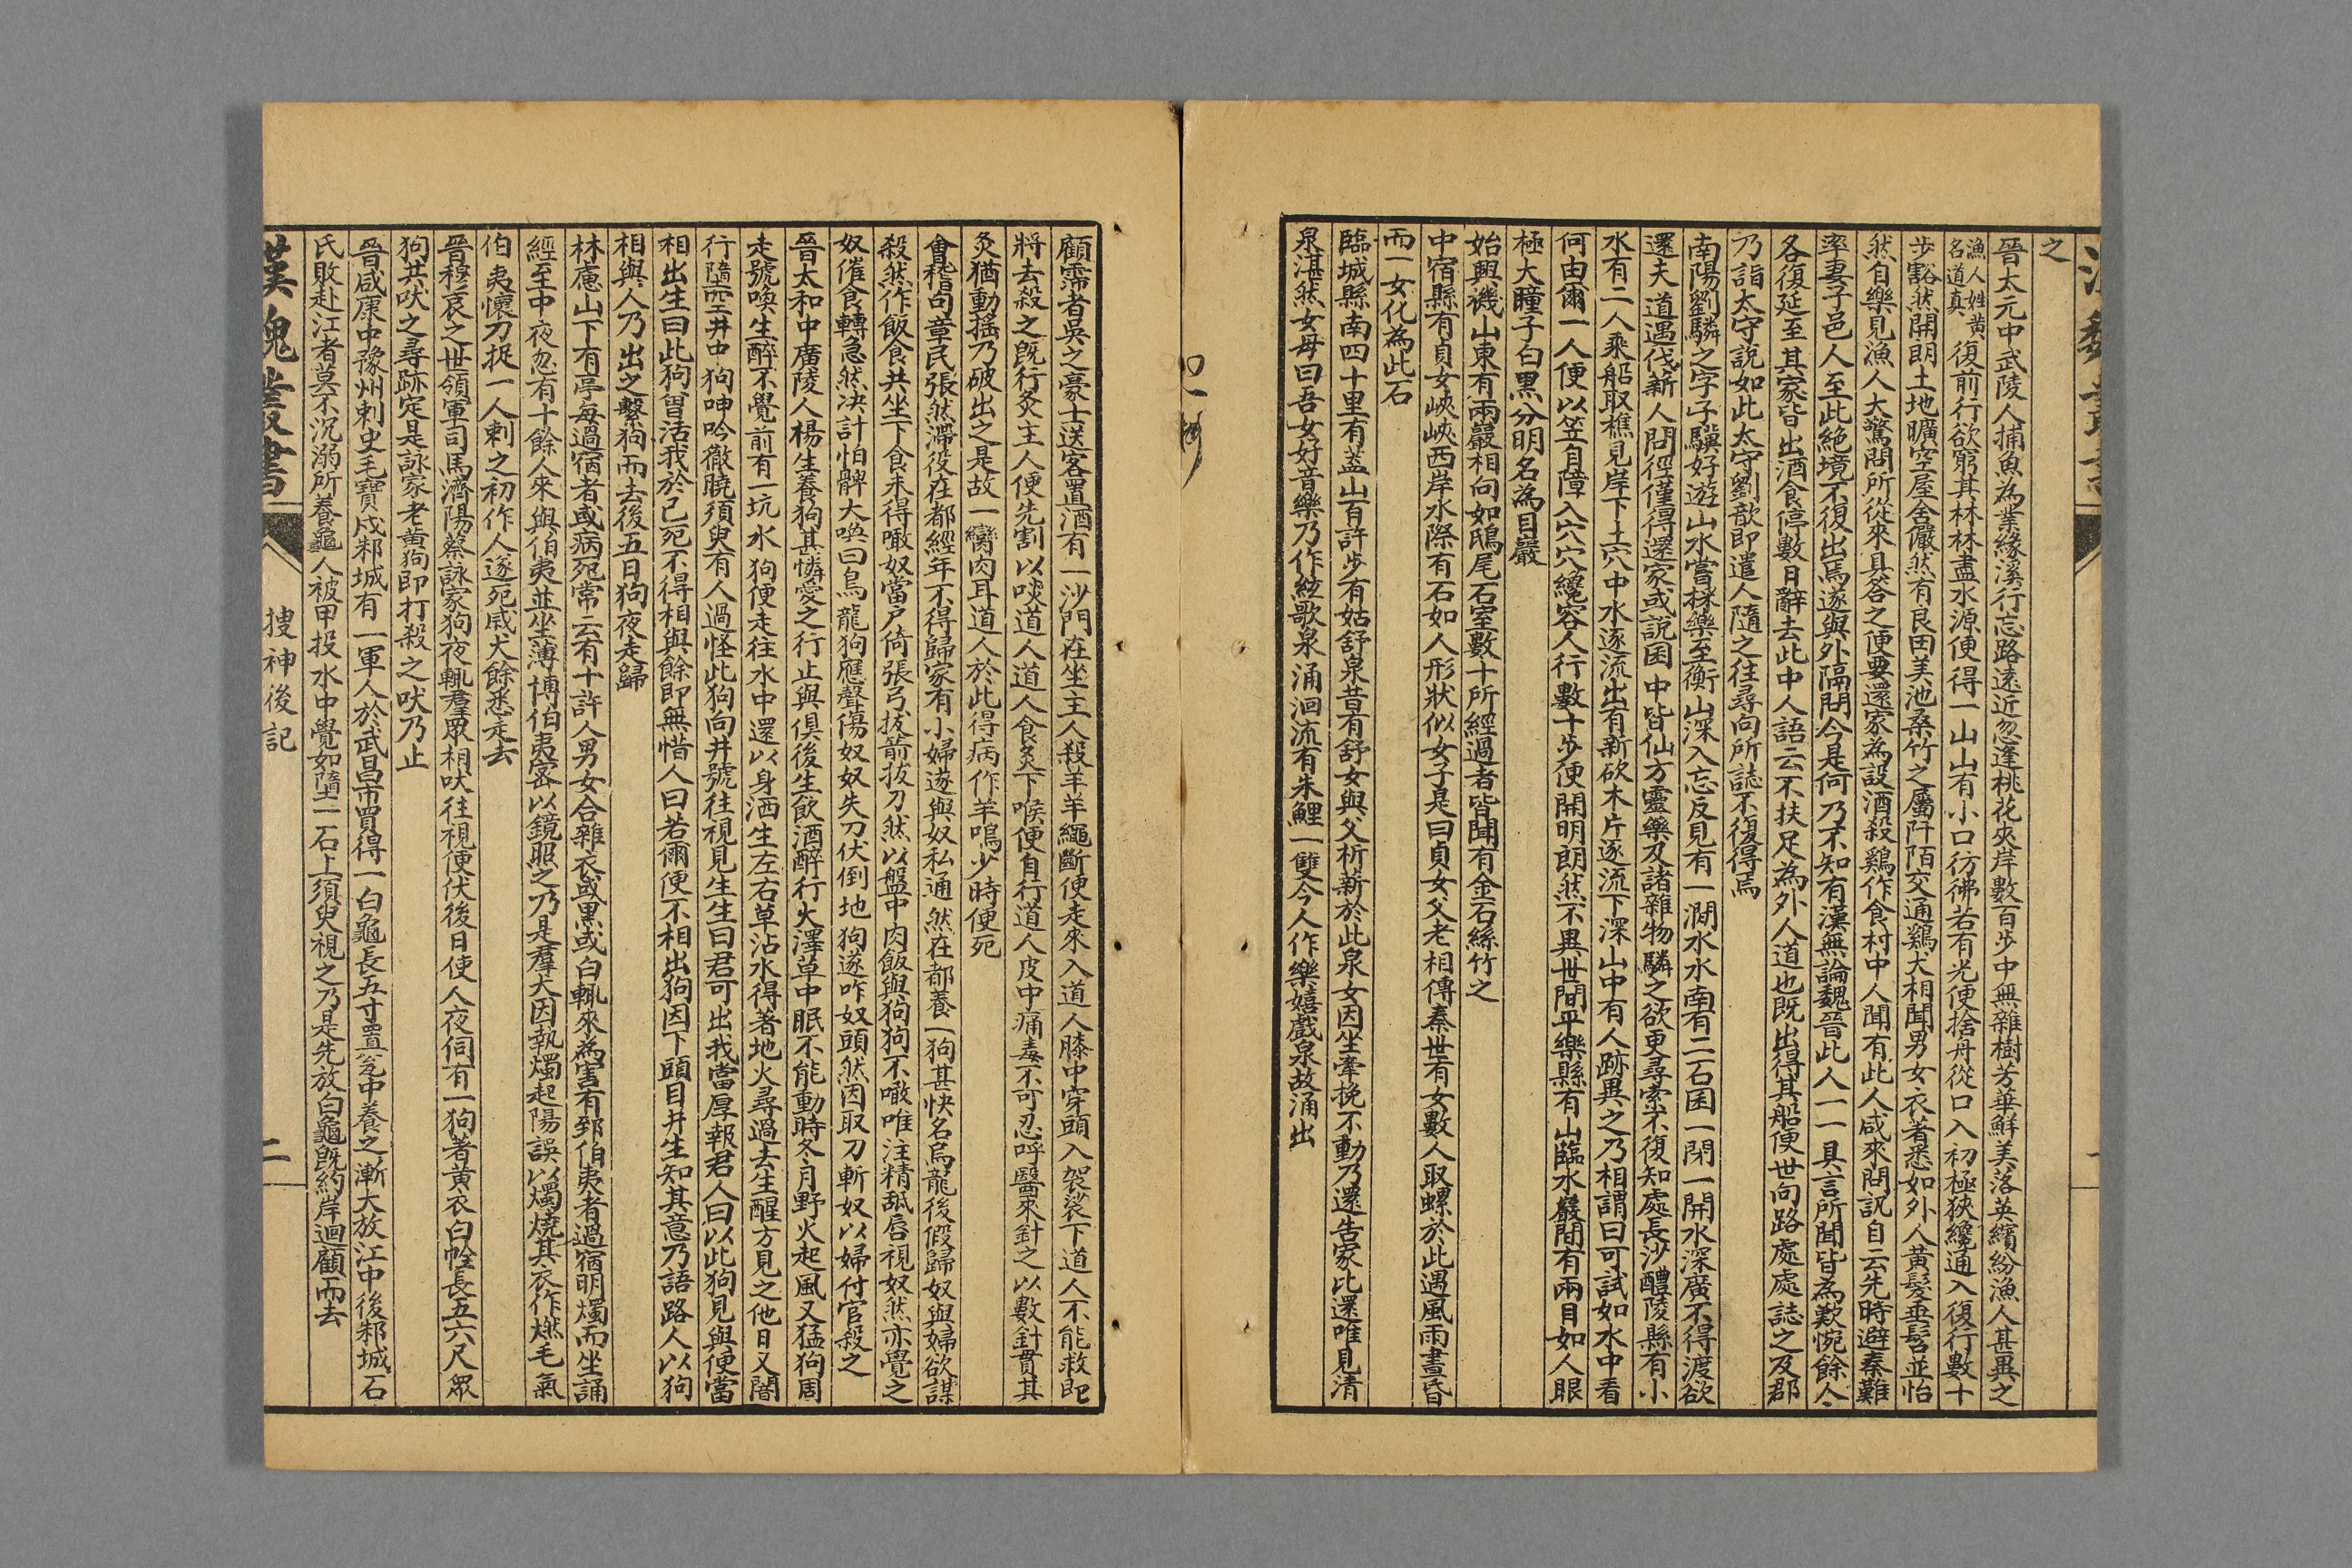 之
晉太元中武陵人捕魚為業緣溪行忘路遠近忽逢桃花夾岸數百步中無雜樹芳華鮮美落英繽紛漁人甚異之
漁人姓黃名道真復前行欲窮其林林盡水源便得一山山有小口彷彿若有光便捨舟從口入初極狹纔通入復行數十
步豁然開朗土地曠空屋舍儼然有良田美池桑竹之屬阡陌交通鷄犬相聞男女衣著悉如外人黃髮垂髫並怡
然自樂見漁人大驚問所從來具答之便要還家為設酒殺鷄作食村中人聞有此人咸來問訊自云先時避秦難
率妻子邑人至此絶境不復出焉遂與外隔問今是何乃不知有漢無論魏晉此人一一具言所聞皆為歎惋餘人
各復延至其家皆出酒食停數日辭去此中人語云不扶足為外人道也既出得其船便世向路處處誌之及郡
乃詣太守說如此太守劉歆即遣人隨之往尋向所誌不復得焉
南陽劉驎之字子驥好遊山水嘗採藥至衡山深入忘反見有一澗水水南有二石囷一閉一開水深廣不得渡欲
還夫道遇伐薪人問徑僅得還家或説囷中皆仙方靈藥及諸雜物驎之欲更尋索不復知處長沙醴陵縣有小
水有二人乘船取樵見岸下土穴中水逐流出有新砍木片逐流下深山中有人跡異之乃相謂曰可試如水中看
何由爾一人便以笠自障入穴穴纔容人行數十步便開明朗然不異世間平樂縣有山臨水巖間有兩目如人眼
極大瞳子白黑分明名為目巖
始興機山東有兩巖相向如鴟尾石室數十所經過者皆聞有金石絲竹之
中宿縣有貞女峽峽西岸水際有石如人形狀似女子是曰貞女父老相傳秦世有女數人取螺於此遇風雨晝昏
而一女化為此石
臨城縣南四十里有蓋山百許步有姑舒泉昔有舒女與父析薪於此泉女因坐牽挽不動乃還告家比還唯見清
泉湛然女母曰吾女好音樂乃作絃歌泉涌洄流有朱鯉一雙今人作樂嬉戲泉故涌出
顧霈者吳之豪士送客置酒有一沙門在坐主人殺羊羊繩斷便走來入道人膝中穿頭入袈裟下道人不能救即
將去殺之既行炙主人便先割以啖道人道人食炙下喉便自行道人皮中痛毒不可忍呼醫來針之以數針貫其
炙猶動搖乃破出之是故一臠肉耳道人於此得病作羊鳴少時便死
會稽句章民張然滯役在都經年不得歸家有小婦遂與奴私通然在都養一狗甚快名烏龍後假歸奴與婦欲謀
殺然作飯食共坐下食未得噉奴當戶倚張弓拔箭拔刀然以盤中肉飯與狗狗不噉唯注精舐唇視奴然亦覺之
奴催食轉急然決計怕髀大喚曰烏龍狗應聲傷奴奴失刀伏倒地狗遂咋奴頭然因取刀斬奴以婦付官殺之
晉太和中廣陵人楊生養狗甚憐愛之行止與俱後生飲酒醉行火澤草中眠不能動時冬月野火起風又猛狗周
走號喚生醉不覺前有一坑水狗便走往水中還以身洒生左右草沾水得著地火尋過去生醒方見之他日又闇
行墮空井中狗呻吟徹曉須臾有人過怪此狗向井號往視見生生曰君可出我當厚報君人曰以此狗見與便當
相出生曰此狗曾活我於已死不得相與餘即無惜人曰若爾便不相出狗因下頭目井生知其意乃語路人以狗
相與人乃出之繫狗而去後五日狗夜走歸
林慮山下有亭每過宿者或病死常云有十許人男女合雜衣或黑或白輒來為害有郅伯夷者過宿明燭而坐誦
經至中夜忽有十餘人來與伯夷並坐薄博伯夷密以鏡照之乃是羣犬因執燭起陽誤以燭燒其衣作燃毛氣
伯夷懷刀捉一人刺之初作人遂死成犬餘悉走去
晉穆哀之世領軍司馬濟陽蔡詠家狗夜輒羣眾相吠往視便伏後日使人夜伺有一狗著黃衣白㡌長五六尺眾
狗共吠之尋跡定是詠家老黃狗即打殺之吠乃止
晉咸康中豫州刺史毛寶戍邾城有一軍人於武昌市買得一白龜長五寸置瓮中養之漸大放江中後邾城石
氏敗赴江者莫不沉溺所養龜人被甲投水中覺如墮一石上須臾視之乃是先放白龜既約岸迴顧而去
漢魏叢書
搜神後記
二